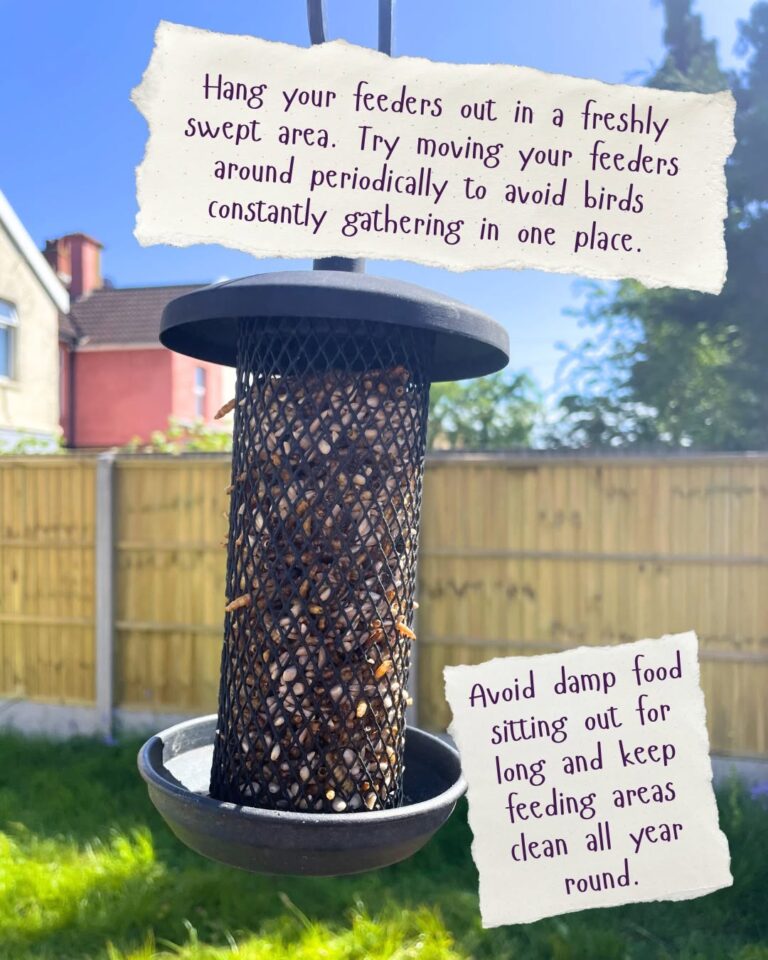 Hang your feeders out in a freshly
swept area. Try moving your feeders
around periodically to avoid birds
constantly gathering in one place.
Avoid damp food
sitting out for
long and keep
feeding areas
clean all year
round.